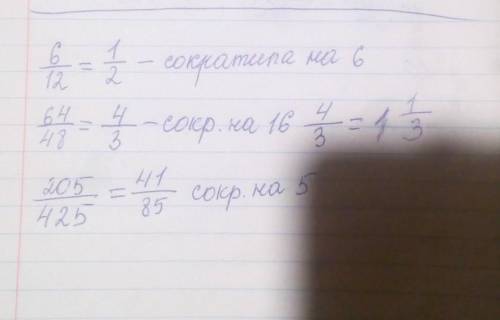 6/12 = 1/2 - сократила на 6
64/48 = 4/3 - сокр. на 16 4/3 = 1 1/3
205/425 = 41/85 сокр. на 5